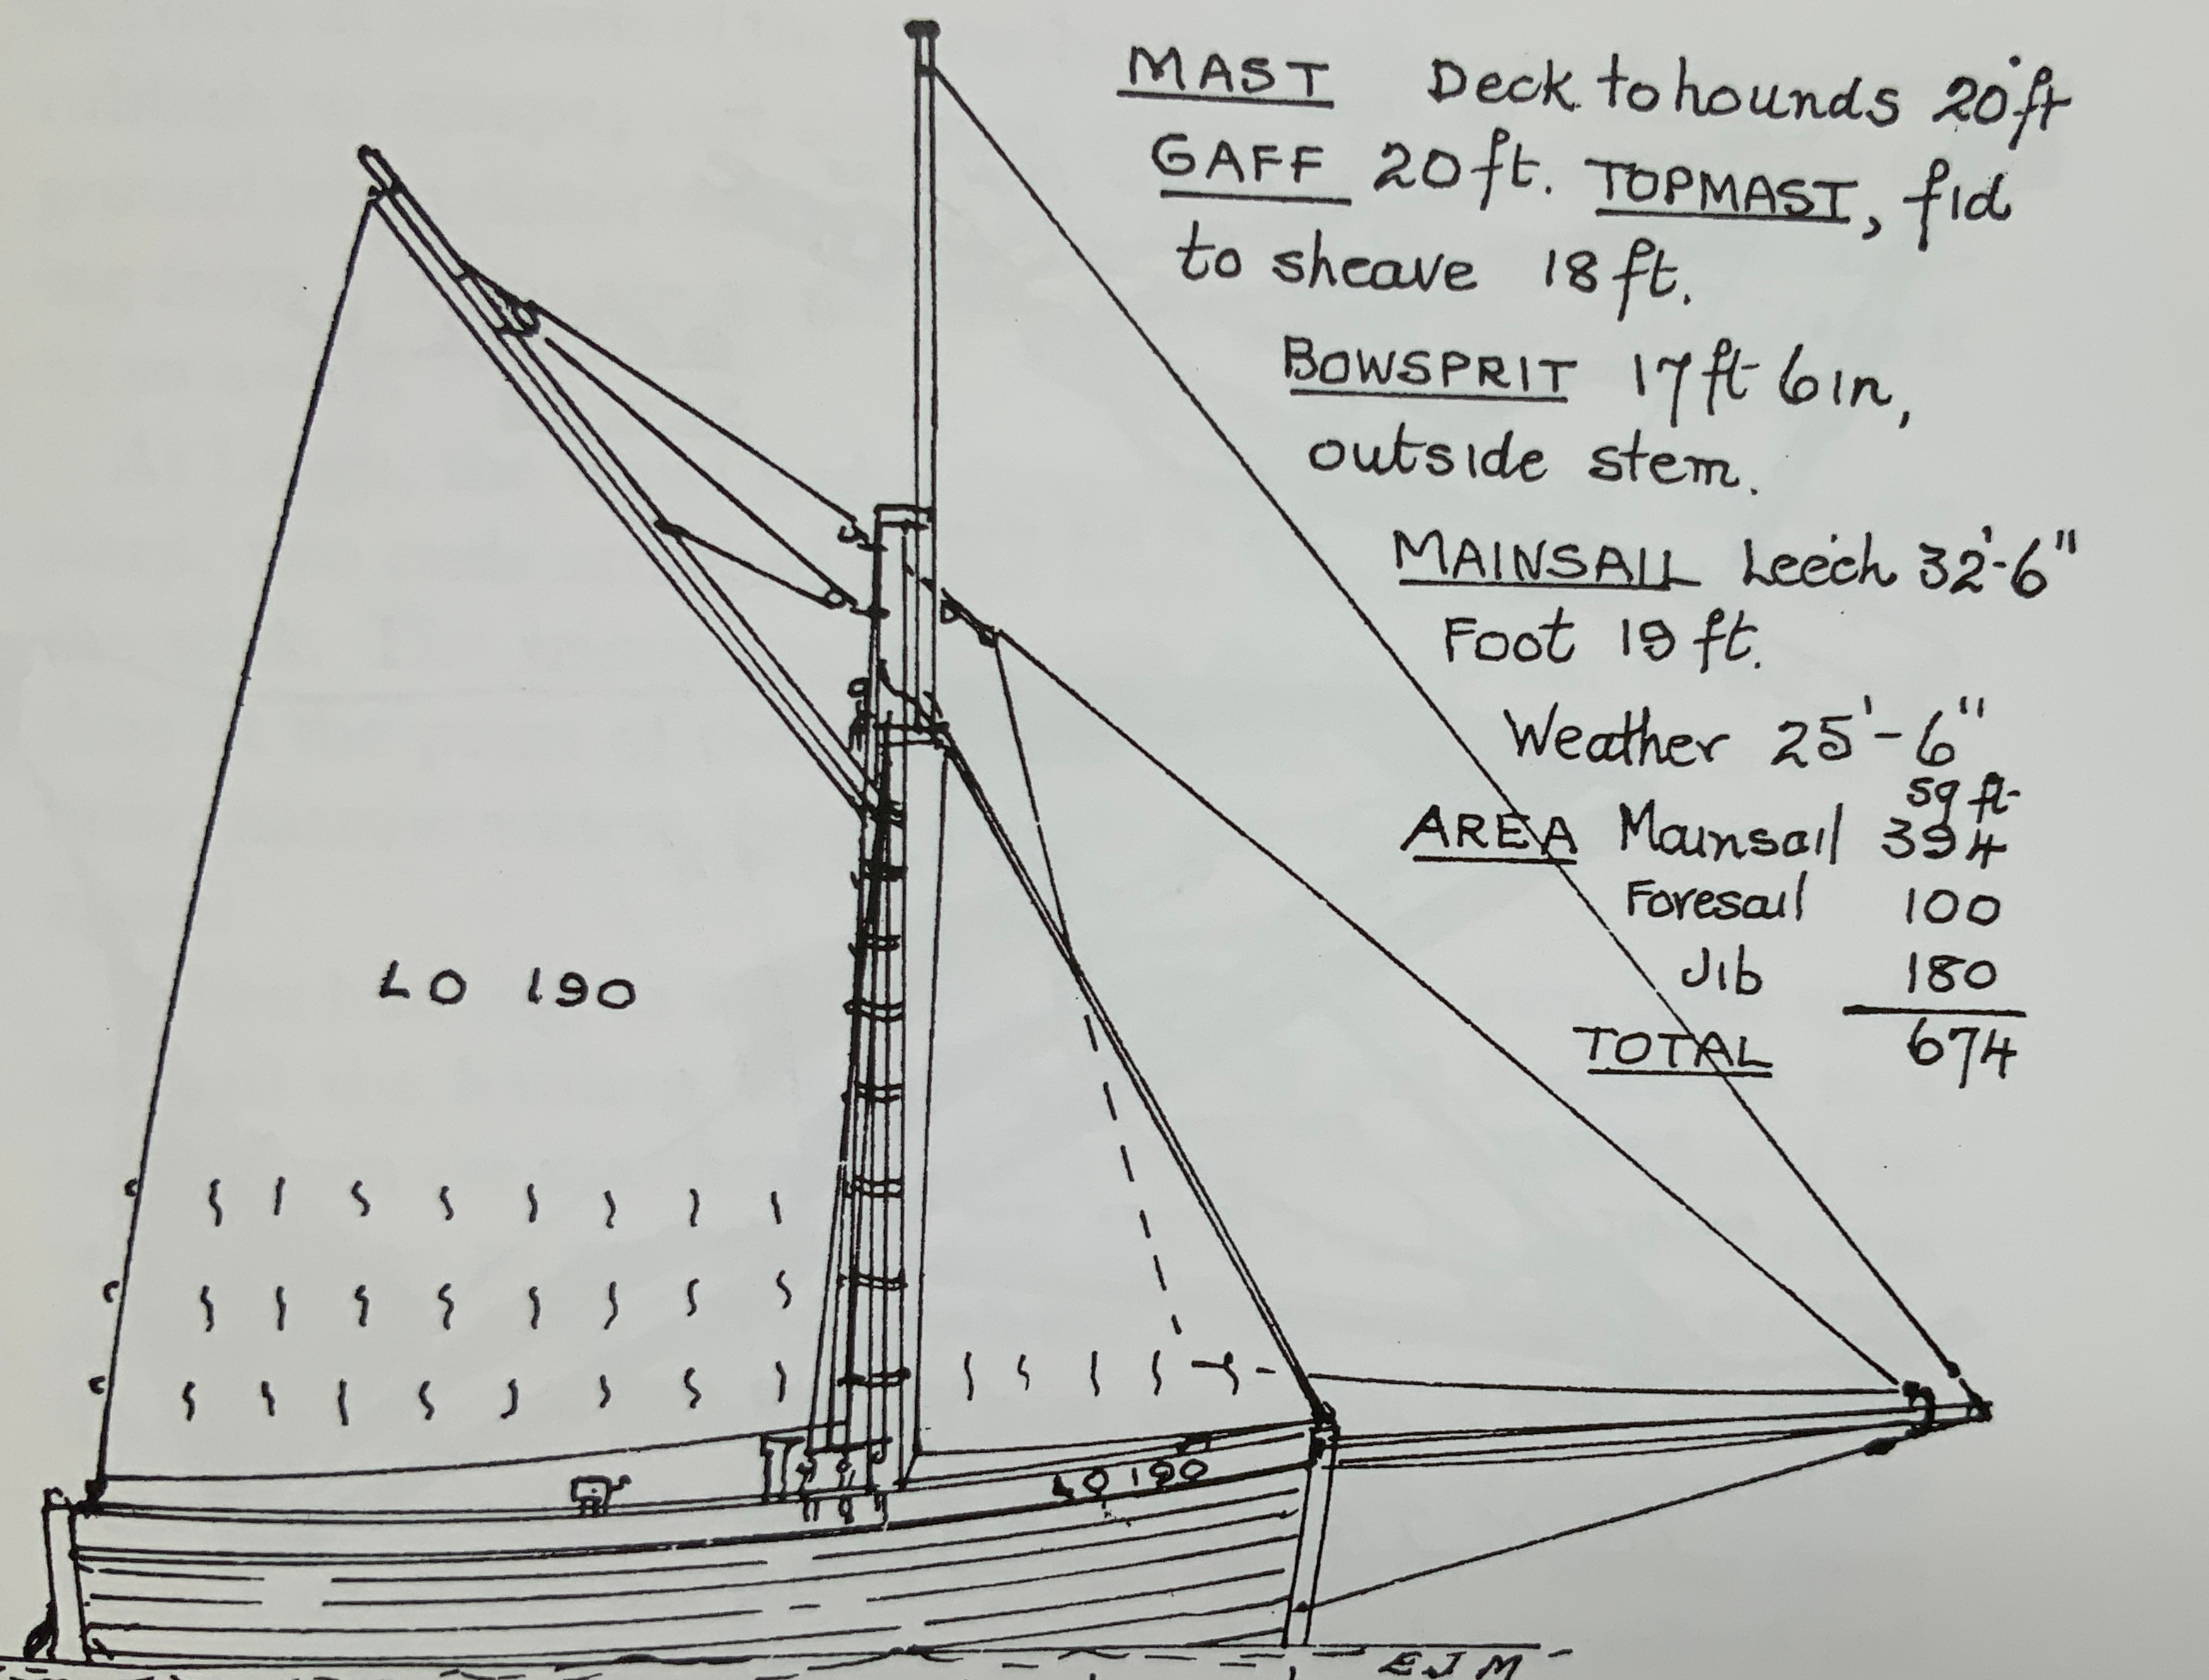 MAST Deck to hounds 20 ft
GAFF 20 ft. TOPMAST, fid
to sheave 18 ft.
BOWSPRIT 17 ft 6 in,
outside stem.
MAINSAIL Leech 32'-6"
Foot 19 ft.
Weather 25'-6"
sq ft
AREA Mainsail 394
Foresail 100
Jib 180
TOTAL 674
LO 190
LO 190
EJM